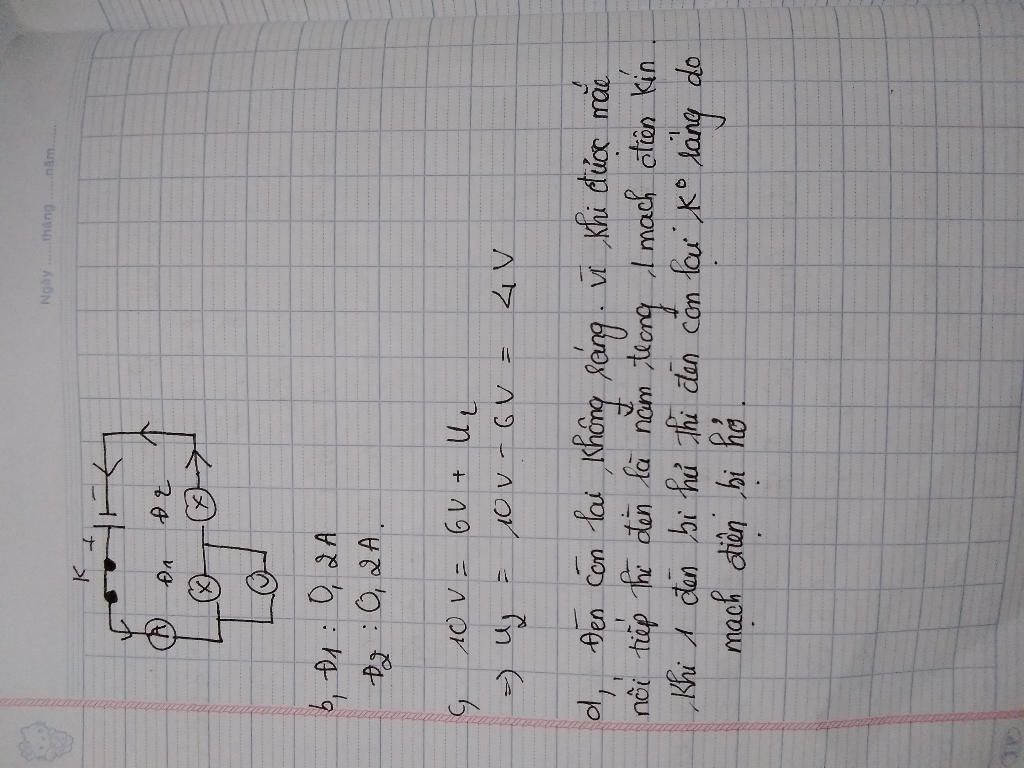 Ngày ..... tháng ..... năm .....
K
+ -
A
Đ1 Đ2
X X
V
b, Đ1 : 0,2A
Đ2 : 0,2A.
c, 10V = 6V + U2
=> U2 = 10V - 6V = 4V
d, Đèn còn lại không sáng. Vì khi được mắc
nối tiếp thì đèn là nằm trong 1 mạch điện kín.
Khi 1 đèn bị hư thì đèn còn lại K° sáng do
mạch điện bị hở.